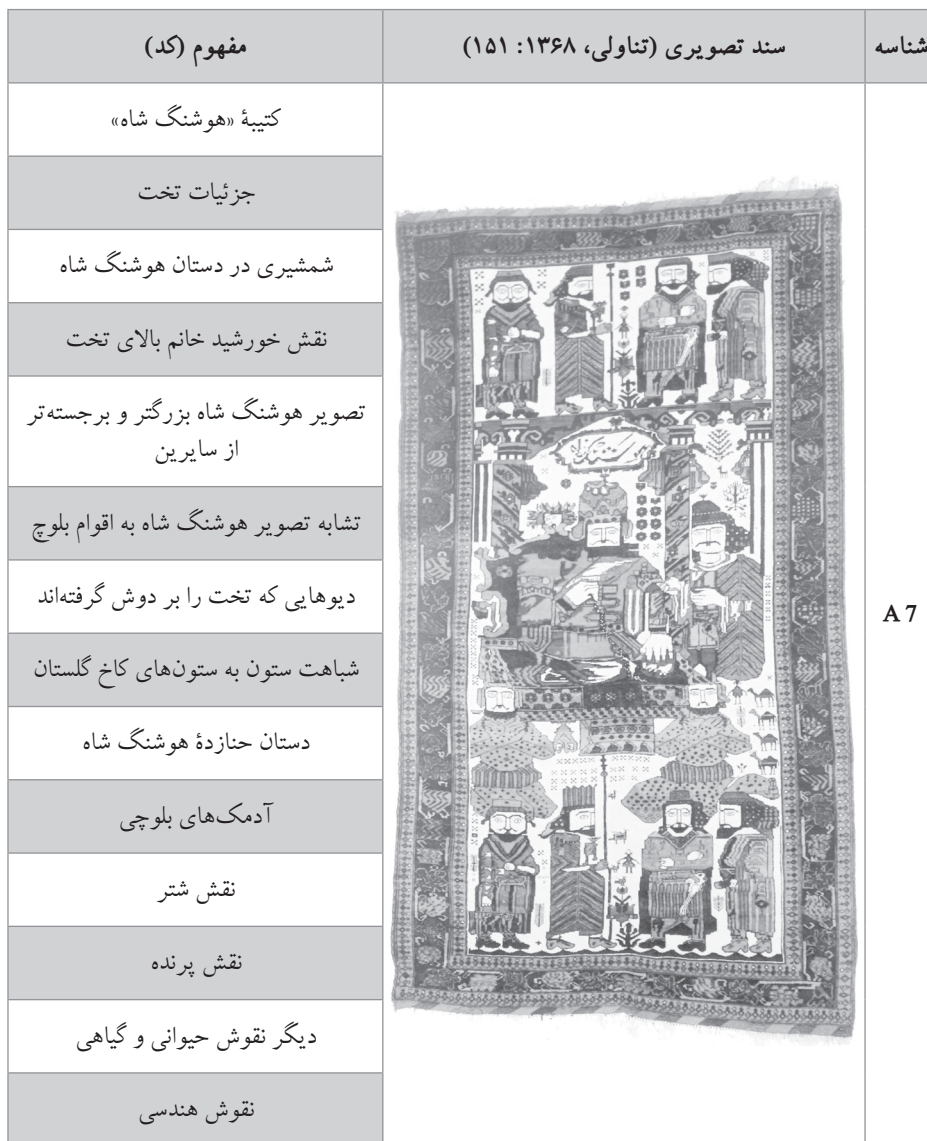 شناسه
سند تصویری (تناولی، ۱۳۶۸: ۱۵۱)
مفهوم (کد)
A 7
کتیبهٔ «هوشنگ شاه»
جزئیات تخت
شمشیری در دستان هوشنگ شاه
نقش خورشید خانم بالای تخت
تصویر هوشنگ شاه بزرگتر و برجسته‌تر
از سایرین
تشابه تصویر هوشنگ شاه به اقوام بلوچ
دیوهایی که تخت را بر دوش گرفته‌اند
شباهت ستون به ستون‌های کاخ گلستان
دستان حنازدهٔ هوشنگ شاه
آدمک‌های بلوچی
نقش شتر
نقش پرنده
دیگر نقوش حیوانی و گیاهی
نقوش هندسی